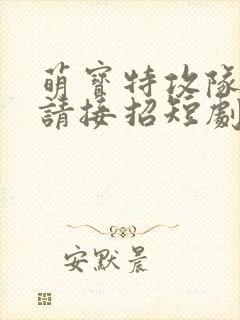 萌寶特攻隊
請接招短劇
安默晨